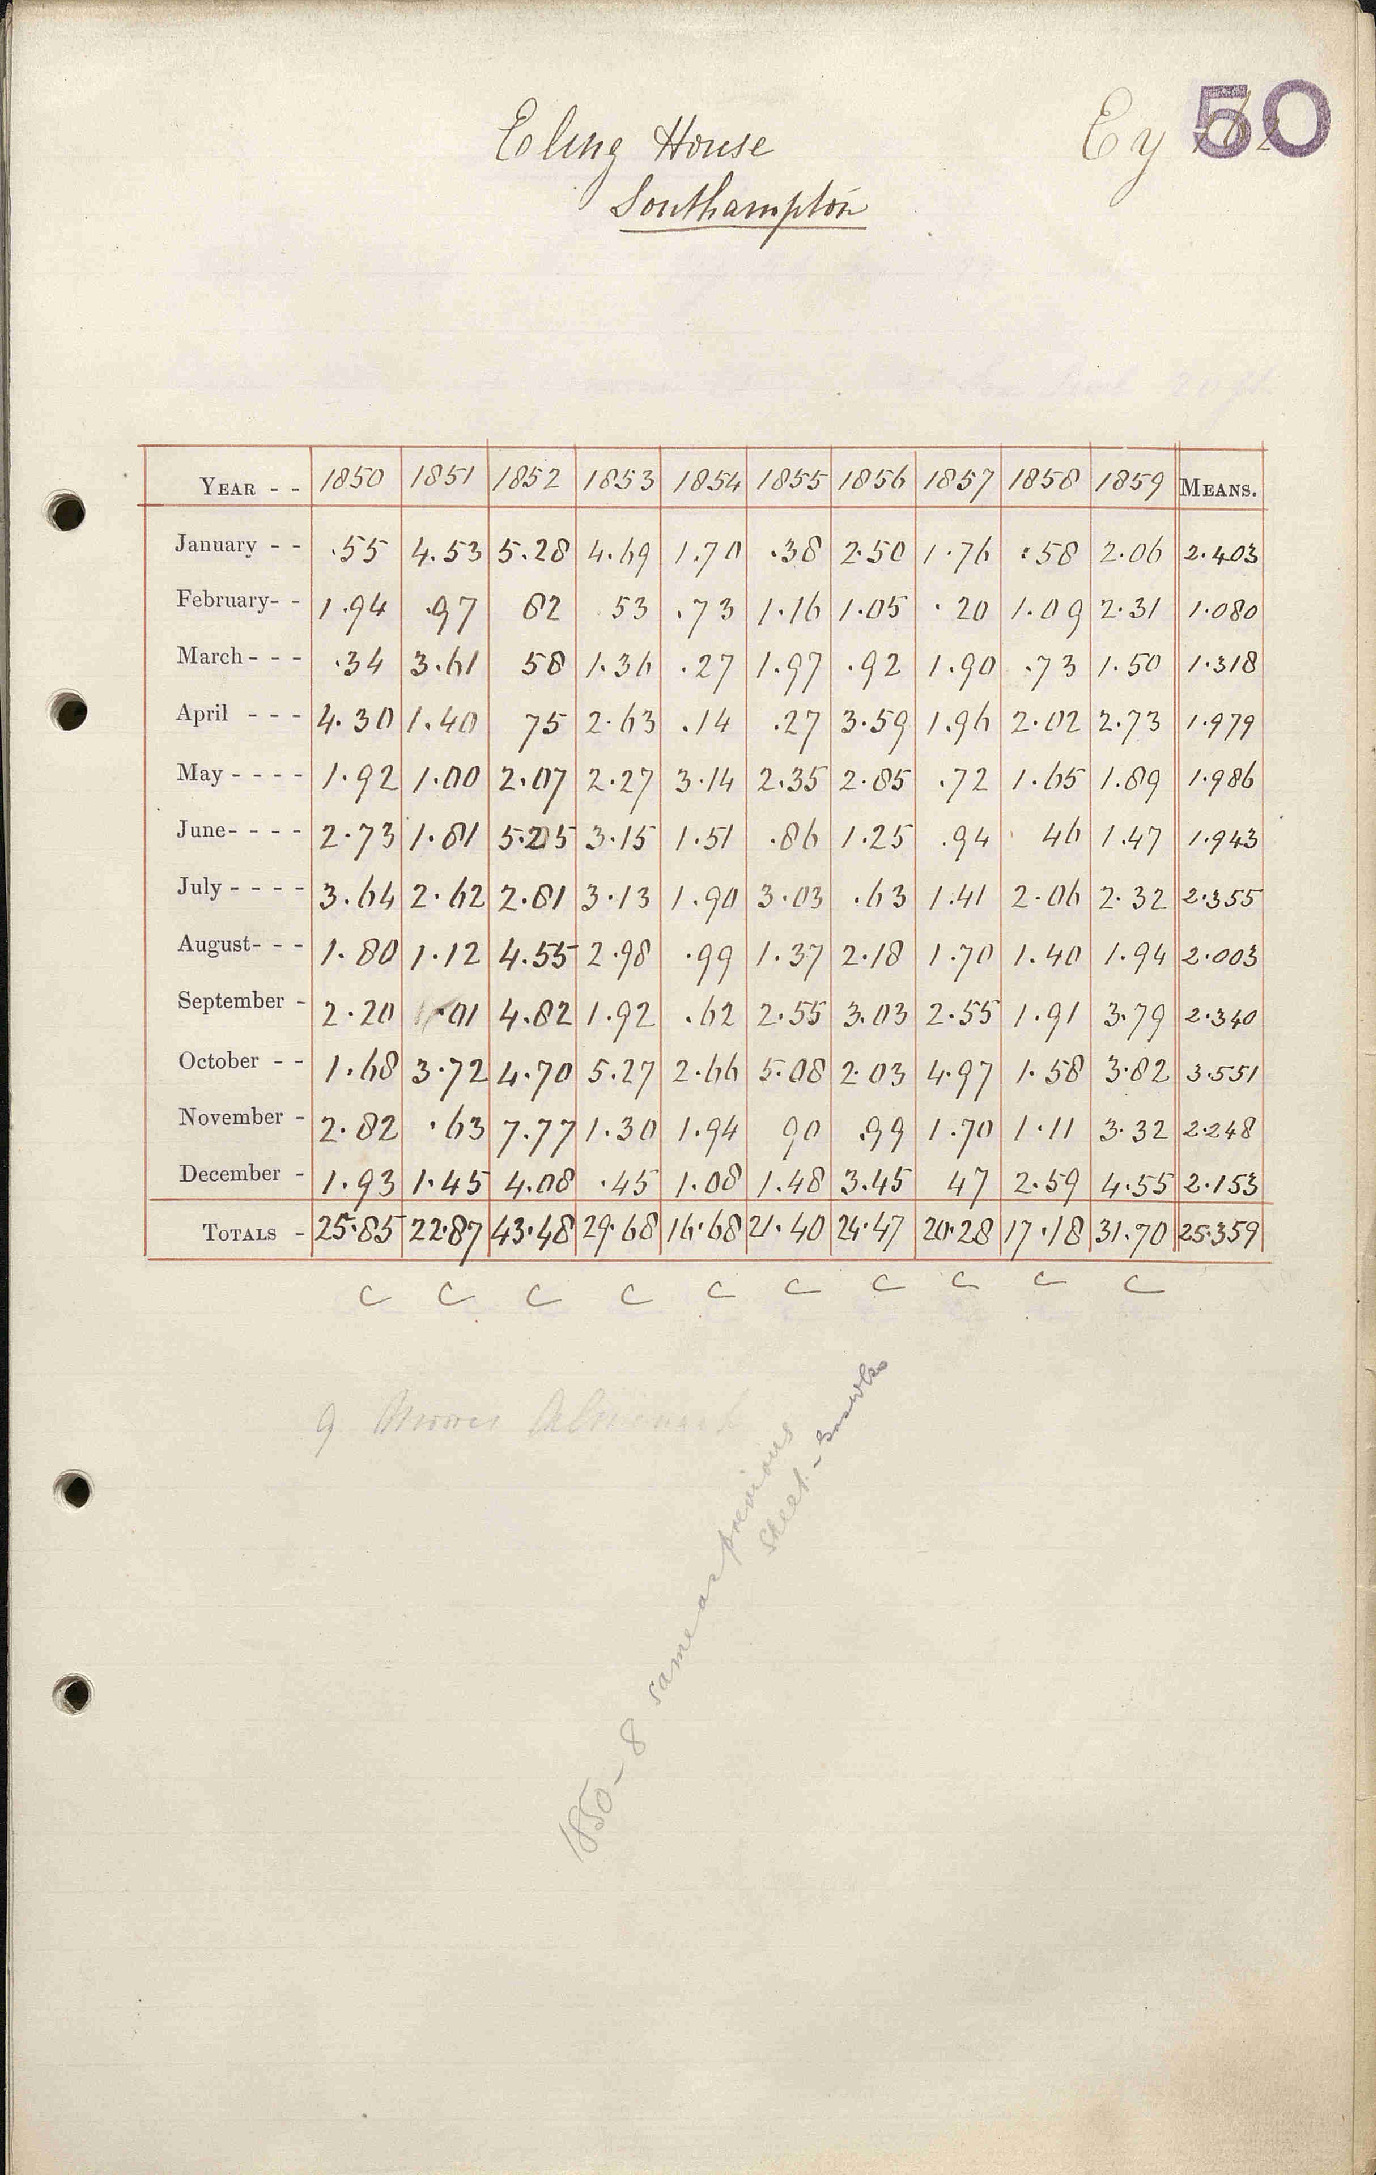 Eling House
Southampton
Ey 50
YEAR - - 1850 1851 1852 1853 1854 1855 1856 1857 1858 1859 MEANS.
January - - .55 4.53 5.28 4.69 1.70 .38 2.50 1.76 .58 2.06 2.403
February - - 1.94 .97 82 53 .73 1.16 1.05 .20 1.09 2.31 1.080
March - - - .34 3.61 58 1.36 .27 1.97 .92 1.90 .73 1.50 1.318
April - - - 4.30 1.40 75 2.63 .14 .27 3.59 1.96 2.02 2.73 1.979
May - - - - 1.92 1.00 2.07 2.27 3.14 2.35 2.85 .72 1.65 1.89 1.986
June - - - - 2.73 1.81 5.25 3.15 1.51 .86 1.25 .94 46 1.47 1.943
July - - - - 3.64 2.62 2.81 3.13 1.90 3.03 .63 1.41 2.06 2.32 2.355
August - - - 1.80 1.12 4.55 2.98 .99 1.37 2.18 1.70 1.40 1.94 2.003
September - 2.20 .01 4.82 1.92 .62 2.55 3.03 2.55 1.91 3.79 2.340
October - - 1.68 3.72 4.70 5.27 2.66 5.08 2.03 4.97 1.58 3.82 3.551
November - 2.82 .63 7.77 1.30 1.94 90 .99 1.70 1.11 3.32 2.248
December - 1.93 1.45 4.08 .45 1.08 1.48 3.45 47 2.59 4.55 2.153
TOTALS - 25.85 22.87 43.48 29.68 16.68 21.40 24.47 20.28 17.18 31.70 25.359
C C C C C C C C C C
1850-8 same as previous
sheet -